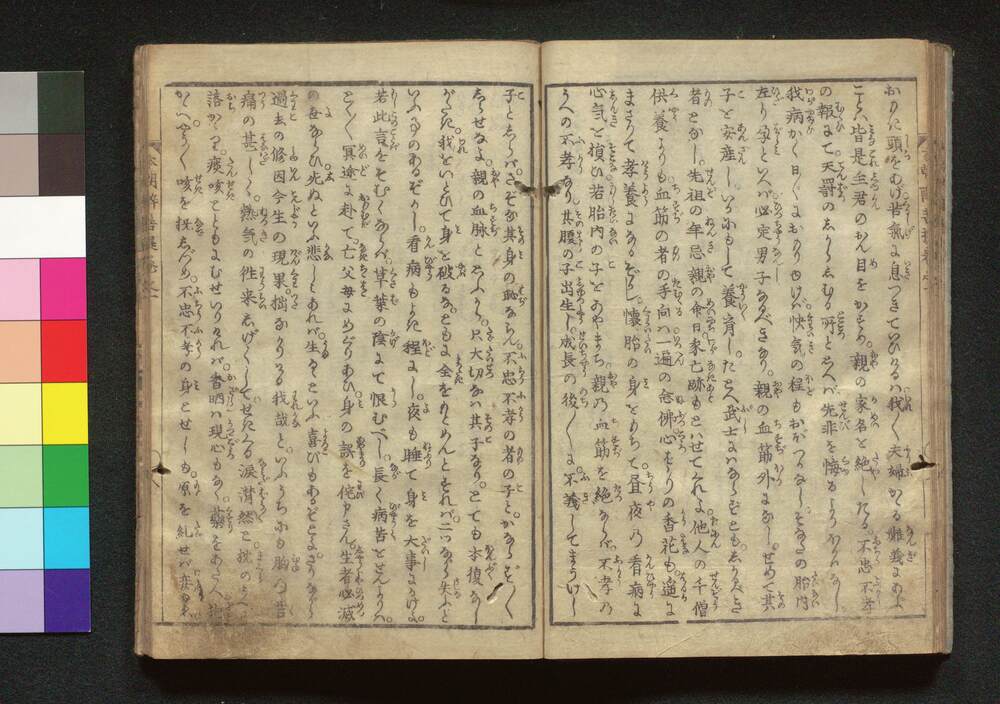 おりに頭をむけ苦氣に息つきていひけるハ我〳〵夫婦かゝる難義にあふ
こと皆是主君のおん目をかすめ親の家名を絶しける不忠不孝
の報にて天罸のしからしむる所とハいへバ先非を悔るより外ハなし
我病かく日〳〵におもりゆけバ快氣の程もおぼつかなしそなたの胎内
左り孕といへバ必定男子なるべきなり親の血筋外になしせめて其
子を安産しいかにもして養育したとへ武士にハならずともしかるべき
者となし先祖の年忌親の命日家亡跡もとハせてくれよ他人の千僧
供養よりも血筋の者の手向ハ一遍の念佛心ばかりの香花も遥に
まさりて孝養になるぞかし懐胎の身をもちて昼夜の看病に
心気を損ひ若胎内の子をあやまち親の血筋を絶なバ不孝の
うへの不孝なり其腹の子出生し成長の後〳〵に不義してまうけし
子としらバさぞな其身の恥ならん不忠不孝の者の子とかならず〳〵
しらせなよ親の血脉といふから只大切なハ其子なりとても本復なし
がたき我をいとひて身を破るなともに全をもとめんとすれバ二つながら失ふと
いふ事のあるぞかし看病もよき程にし夜も睡て身を大事にかけよ
若此言をそむくならバ草葉の陰にて恨むべし長く病苦をせんよりハ
とく〳〵冥途に赴て亡父母にめぐりあひ身の誤を侘申さん生者必滅
の世のならひ死ぬといふ悲しミあれバ生るといふ喜びもあるぞとよさりながら
過去の修因今生の現果拙なかりける我哉といふうちにも胸の苦
痛の甚しく熱気の往来しげくしてせきくる涙潸然と枕のうへに
落かゝり痰咳とともにむせいりけれバ書晒ハ現心もなく薬をあたへ抱
かゝへやう〳〵咳を抚しづめ不忠不孝の身とせしも原を糺せバ妾ゆゑ